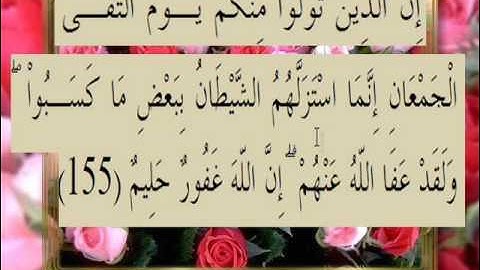 إِنَّ الَّذِينَ تَوَلَّوْاْ مِنكُمْ يَوْمَ الْتَقَى
الْجَمْعَانِ إِنَّمَا اسْتَزَلَّهُمُ الشَّيْطَانُ بِبَعْضِ مَا كَسَبُواْ ۖ
وَلَقَدْ عَفَا اللّهُ عَنْهُمْ ۗ إِنَّ اللّهَ غَفُورٌ حَلِيمٌ (155)